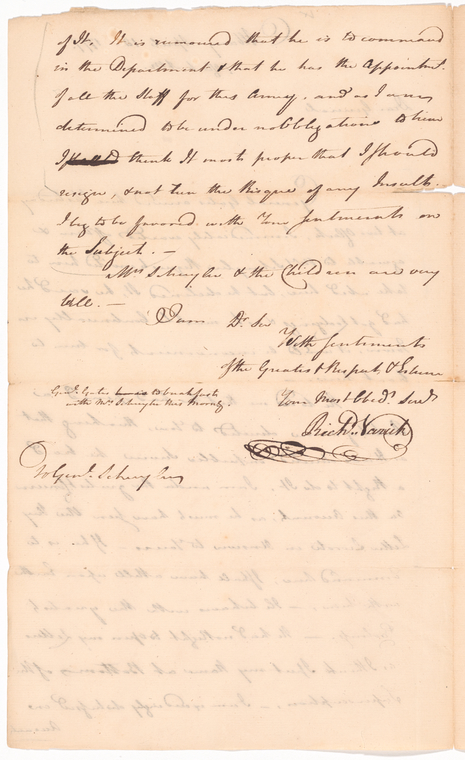 of It. It is rumoured that he is to command
in the Department & that he has the Appointmt.
of all the Staff for this Army. and as I am
determined to be under no Obligations to him
I think It most proper that I should
resign, & not run the Risque of any Insults.
I beg to be favored with Your Sentiments on
the Subject. —
Mrs. Schuyler & the Children are very
well. —
I am Dr. Sir
With Sentiments
of the Greatest Respect & Esteem
Your Most Obedt. Servt.
Richd. Varick
Genl. Gates to breakfast
with Mrs. Schuyler this Morng.
To Genl. Schuyler